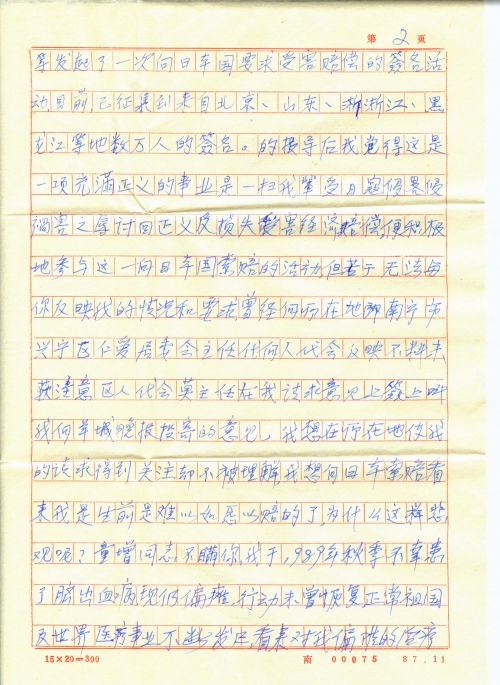 第 2 页
等发起了一次向日本国要求受害赔偿的签名活
动目前已征集到来自北京、山东、浙江、黑
龙江等地数万人的签名。的报导后我觉得这是
一项充满正义的事业是一扫我辈受日寇侵略
祸害之辱讨回正义及损失受害经济赔偿便积极
地参与这一向日本国索赔的活动但苦于无法与
你反映我的情况和要求曾经向所在地即南宁市
兴宁区仁爱居委会主任任何人代会反映不料未
获注意区人代会莫主任在我请求意见上签上叫
我向羊城晚报投寄的意见，我想在所在地使我
的请求得到关注却不被理解我想向日本索赔看
来我是生前是难以如愿以赔的了为什么这样悲
观呢？童增同志不瞒你，我于1989年秋季不幸患
了脑出血病现仍偏瘫，行动未曾恢复正常祖国
及世界医疗事业不断发展看来对我偏瘫的治疗
15×20=300
南 00075 87.11